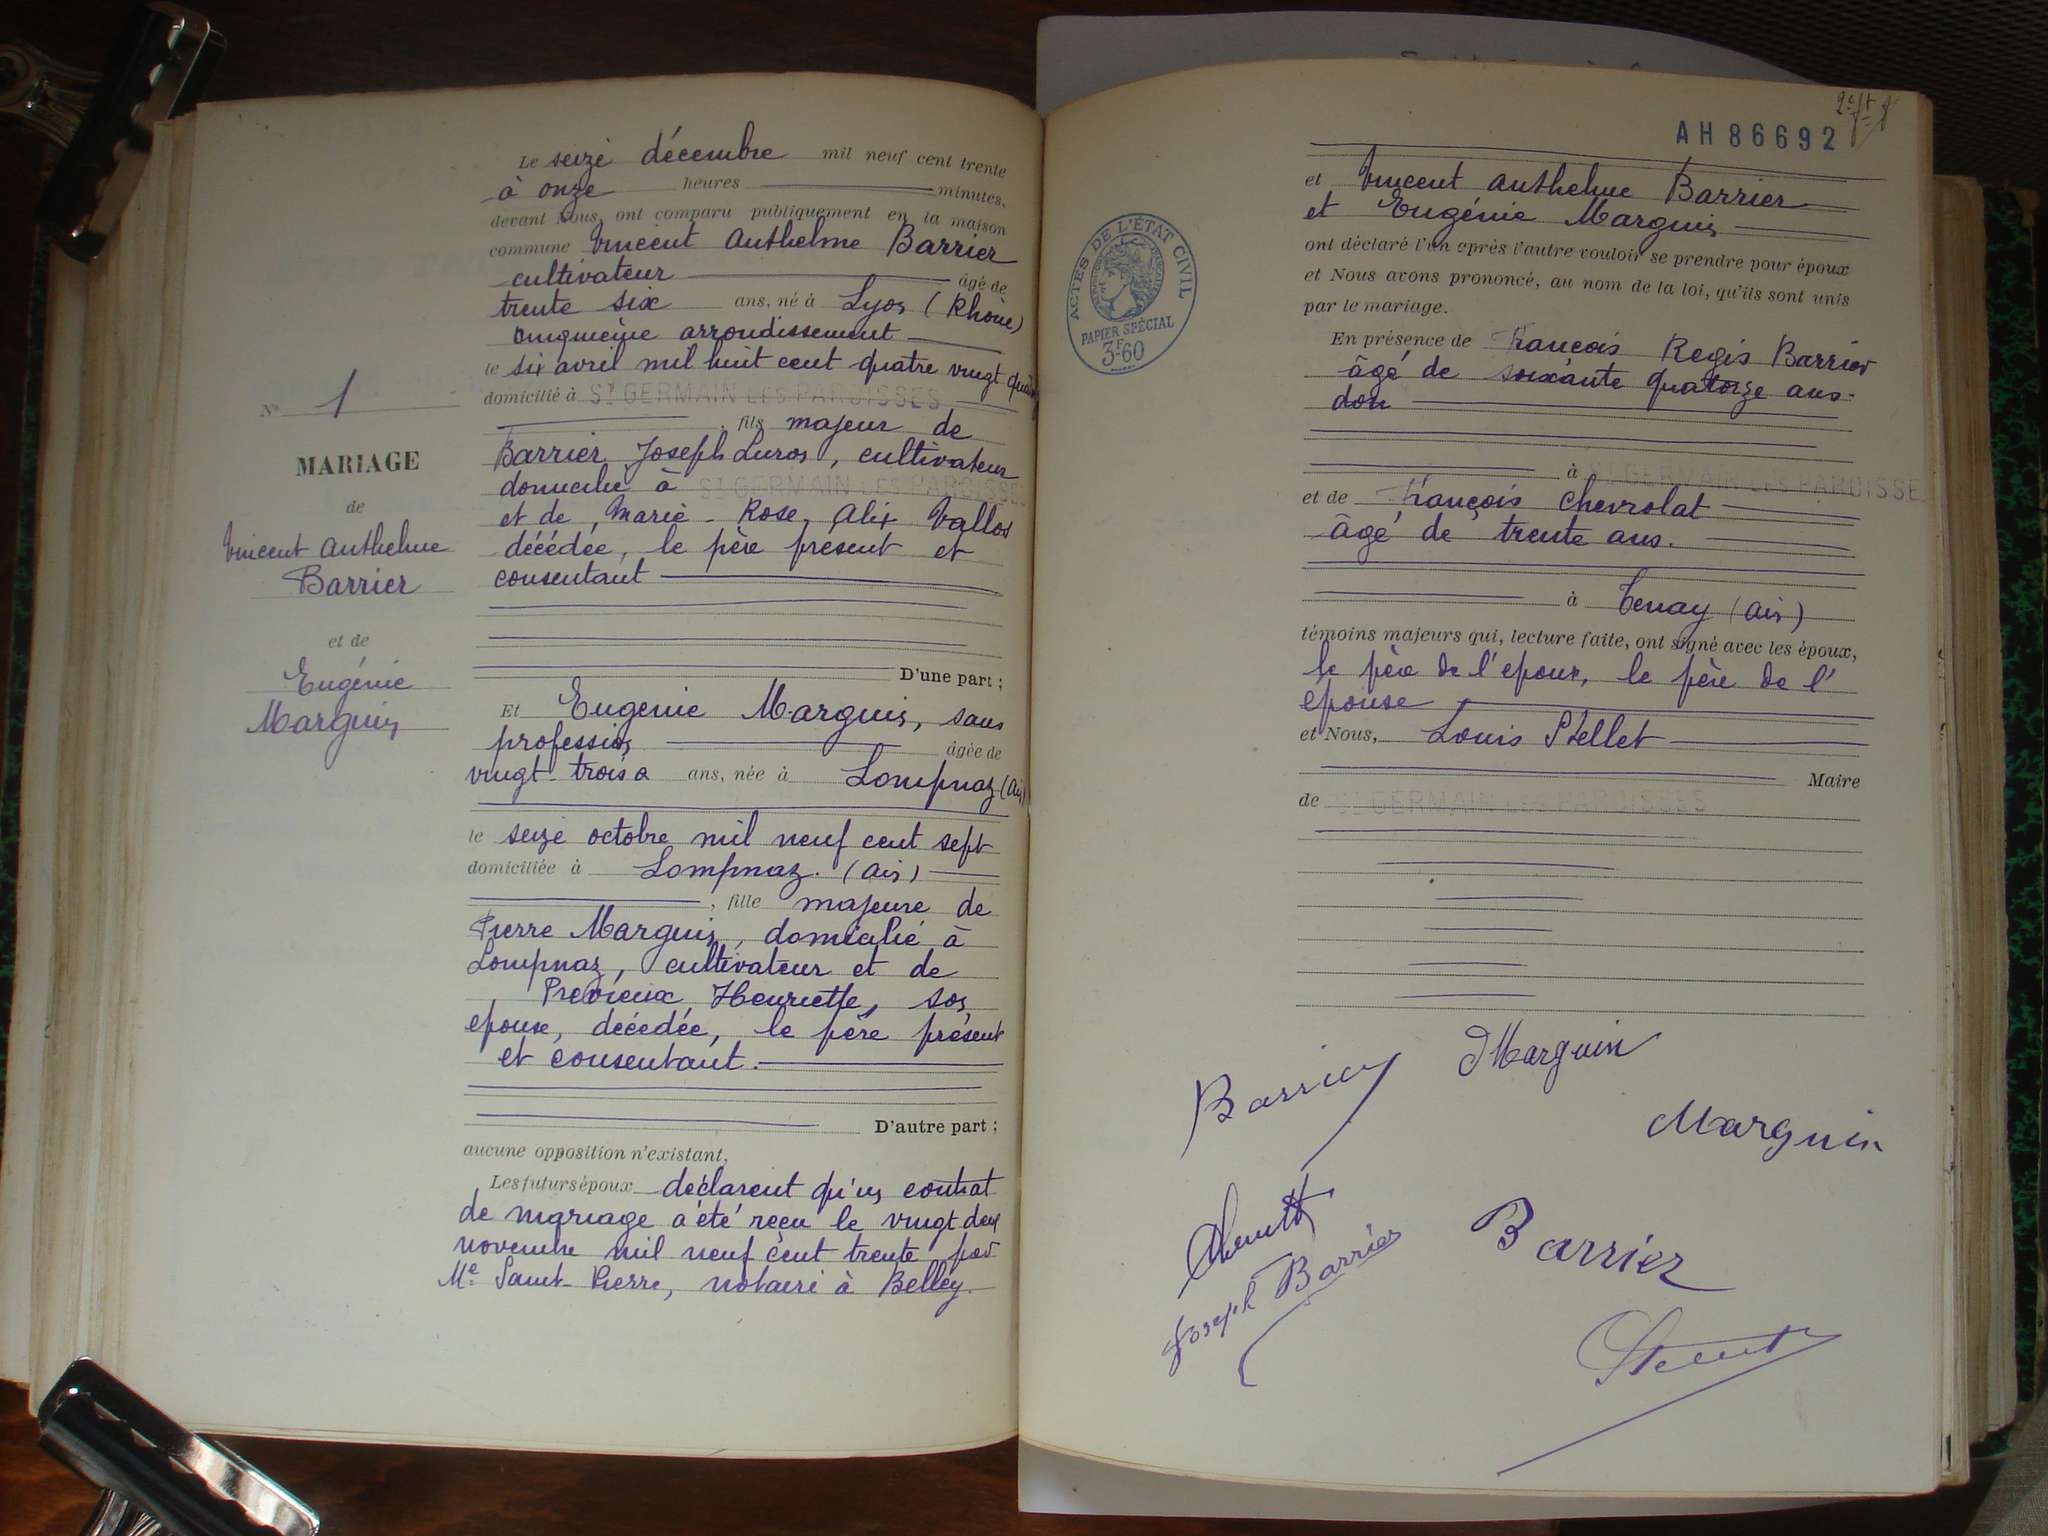 Le seize décembre mil neuf cent trente
à onze heures minutes,
devant Nous, ont comparu publiquement en la maison
commune Vincent Anthelme Barrier
cultivateur âgé de
trente six ans, né à Lyon (Rhône)
cinquième arrondissement
le six avril mil huit cent quatre vingt
domicilié à St GERMAIN LES PAROISSES
, fils majeur de
Barrier Joseph, cultivateur
domicilié à St GERMAIN LES PAROISSES
et de Marie Rose Alix Vallod
décédée, le père présent et
consentant
D'une part ;
Et Eugénie Marguin, sans
profession âgée de
vingt-trois ans, née à Lompnaz (Ain)
le seize octobre mil neuf cent sept
domiciliée à Lompnaz. (Ain)
, fille majeure de
Pierre Marguin, domicilié à
Lompnaz, cultivateur et de
Prévieux Henriette, son
epouse, décédée, le père présent
et consentant.
D'autre part ;
aucune opposition n'existant,
Les futurs époux déclarent qu'un contrat
de mariage a été reçu le vingt deux
novembre mil neuf cent trente par
Me Saint-Pierre, notaire à Belley.
No 1
MARIAGE
de
Vincent Anthelme
Barrier
et de
Eugénie
Marguin
AH 86692
ACTES DE L'ÉTAT CIVIL
PAPIER SPÉCIAL
3F-60
et Vincent Anthelme Barrier
et Eugénie Marguin
ont déclaré l'un après l'autre vouloir se prendre pour époux
et Nous avons prononcé, au nom de la loi, qu'ils sont unis
par le mariage.
En présence de François Regis Barrier
âgé de soixante quatorze ans
à St GERMAIN LES PAROISSE
et de François Chevrolat
âgé de trente ans.
à Tenay (Ain)
témoins majeurs qui, lecture faite, ont signé avec les époux,
le père de l'epoux, le père de l'
épouse
et Nous, Louis
Maire
de St GERMAIN LES PAROISSES
Barrier
Marguin
Marguin
Barrier
Joseph Barrier